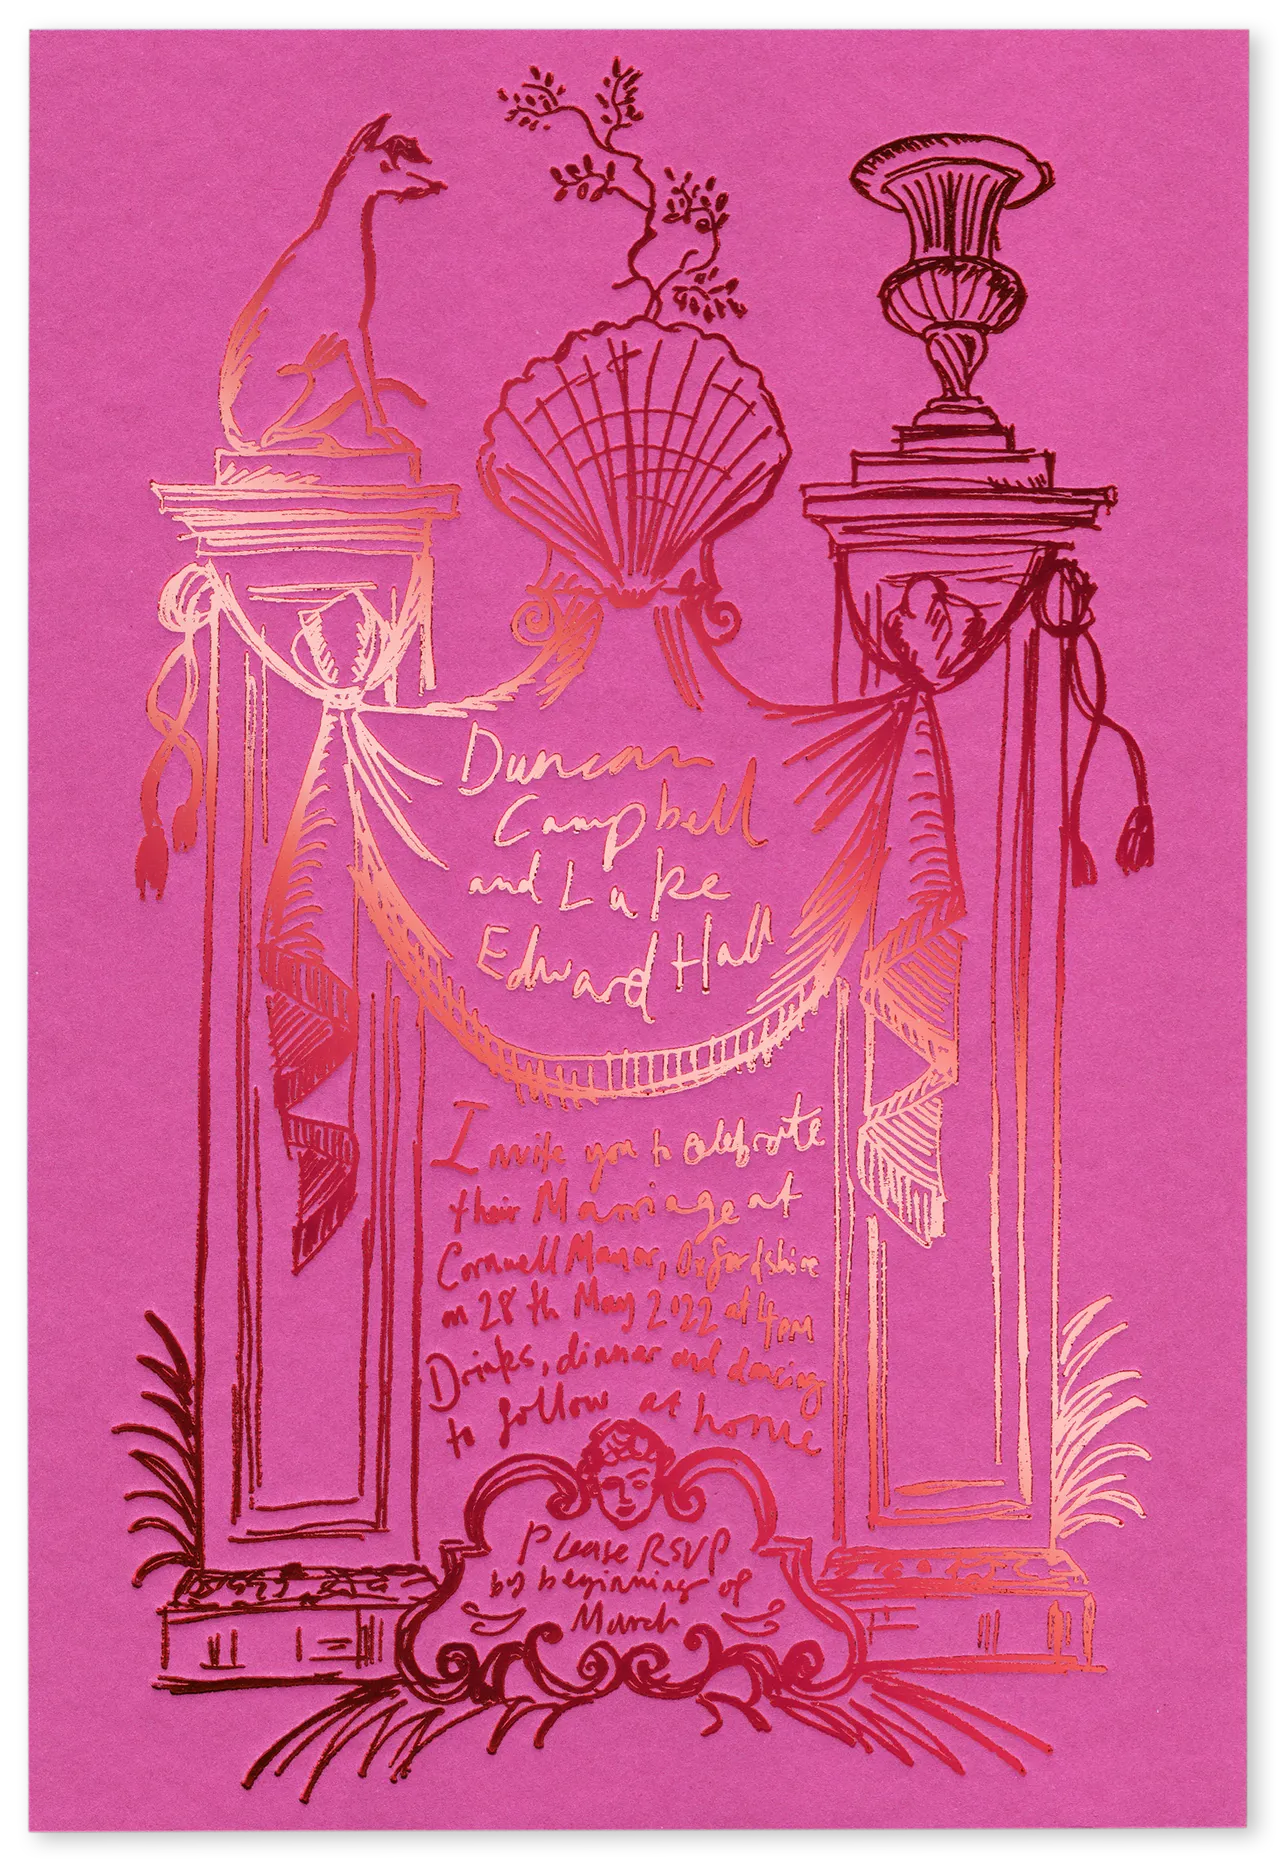 Duncan
Campbell
and Luke
Edward Hall
Invite you to celebrate
their Marriage at
Cornwell Manor, Oxfordshire
on 28th May 2022 at 4pm
Drinks, dinner and dancing
to follow at home
Please RSVP
by beginning of
March